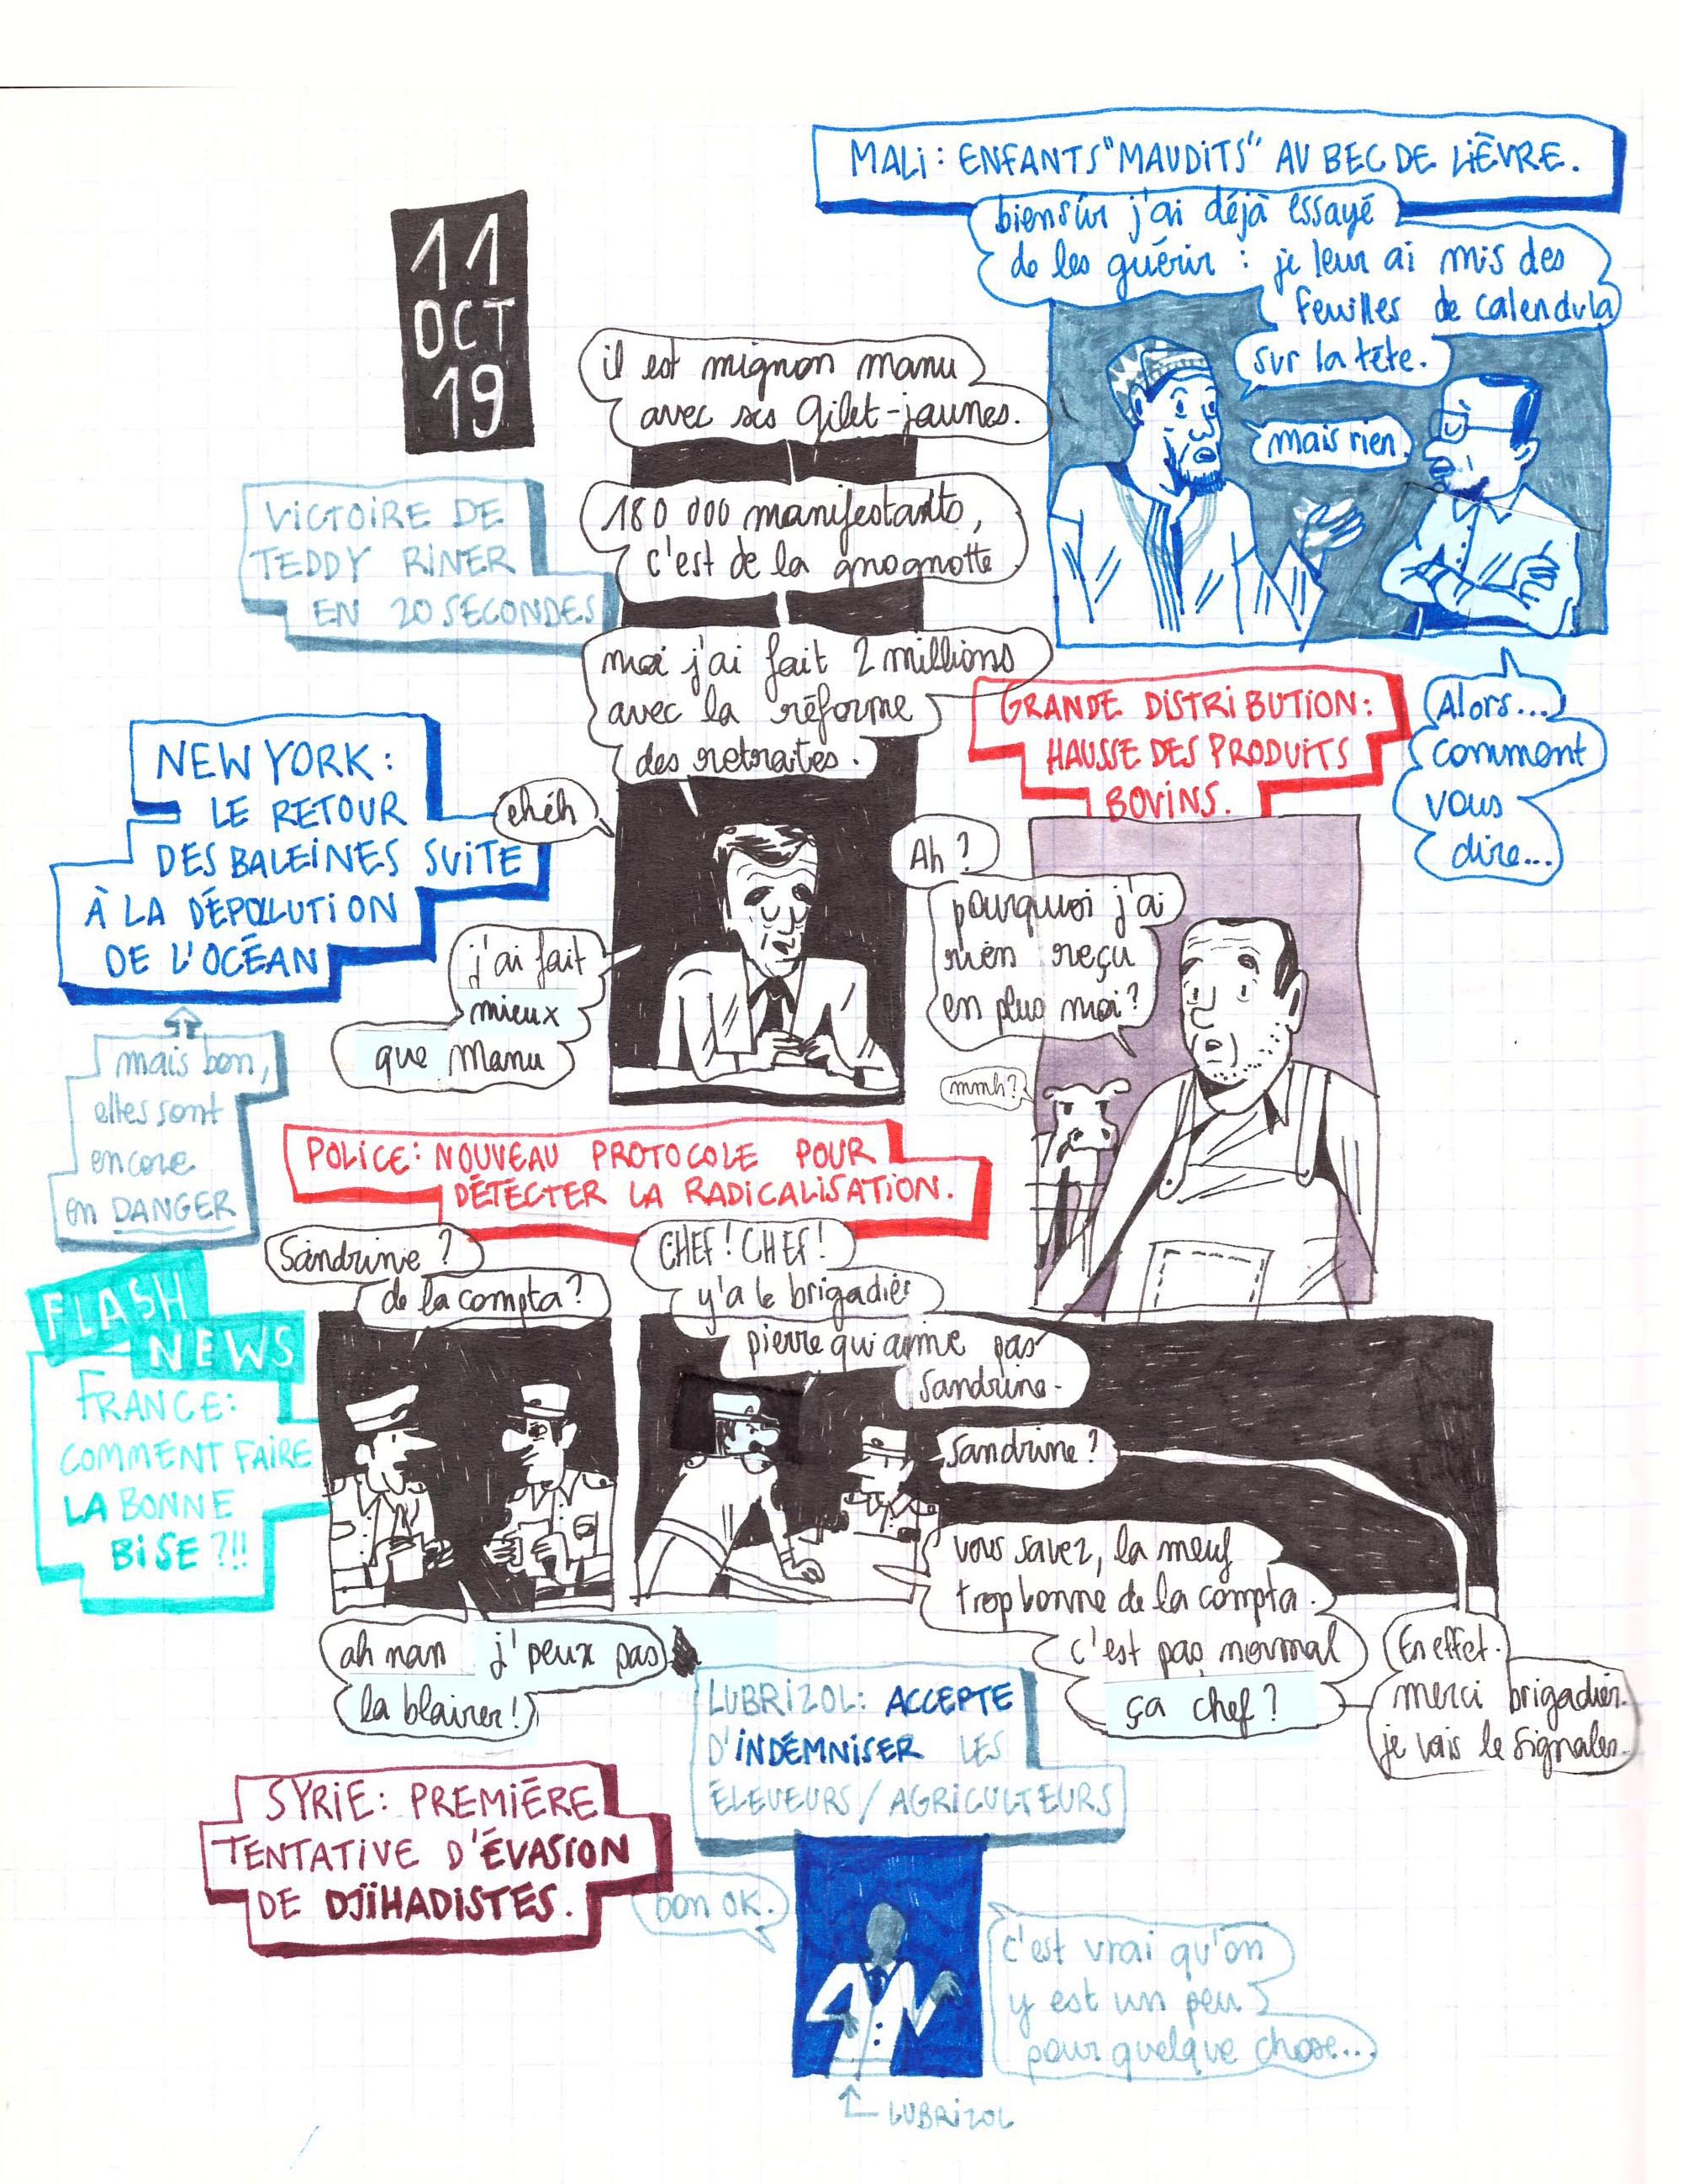 11
OCT
19
MALI : ENFANTS "MAUDITS" AU BEC DE LIÈVRE.
biensûr j'ai déjà essayé
de les guérir : je leur ai mis des
feuilles de calendula
sur la tête.
mais rien.
Alors...
comment
vous
dire...
il est mignon manu
avec ses Gilet-jaunes.
180 000 manifestants,
c'est de la gnognotte
moi j'ai fait 2 millions
avec la réforme
des retraites.
ehéh
j'ai fait
mieux
que Manu
VICTOIRE DE
TEDDY RINER
EN 20 SECONDES
NEW YORK :
LE RETOUR
DES BALEINES SUITE
À LA DÉPOLLUTION
DE L'OCÉAN
mais bon,
elles sont
encore
en DANGER
GRANDE DISTRIBUTION :
HAUSSE DES PRODUITS
BOVINS.
Ah ?
pourquoi j'ai
rien reçu
en plus moi ?
mmh ?
POLICE : NOUVEAU PROTOCOLE POUR
DÉTECTER LA RADICALISATION.
Sandrine ?
de la compta ?
ah nan j'peux pas
la blairer !
CHEF ! CHEF !
y'a le brigadier
pierre qui aime pas
Sandrine.
Sandrine ?
vous savez, la meuf
trop bonne de la compta.
c'est pas normal
ça chef ?
En effet.
merci brigadier.
je vais le signaler.
FLASH
NEWS
FRANCE :
COMMENT FAIRE
LA BONNE
BISE ?!!
LUBRIZOL : ACCEPTE
D'INDEMNISER LES
ÉLEVEURS / AGRICULTEURS
bon OK.
c'est vrai qu'on
y est un peu
pour quelque chose...
LUBRIZOL
SYRIE : PREMIÈRE
TENTATIVE D'ÉVASION
DE DJIHADISTES.